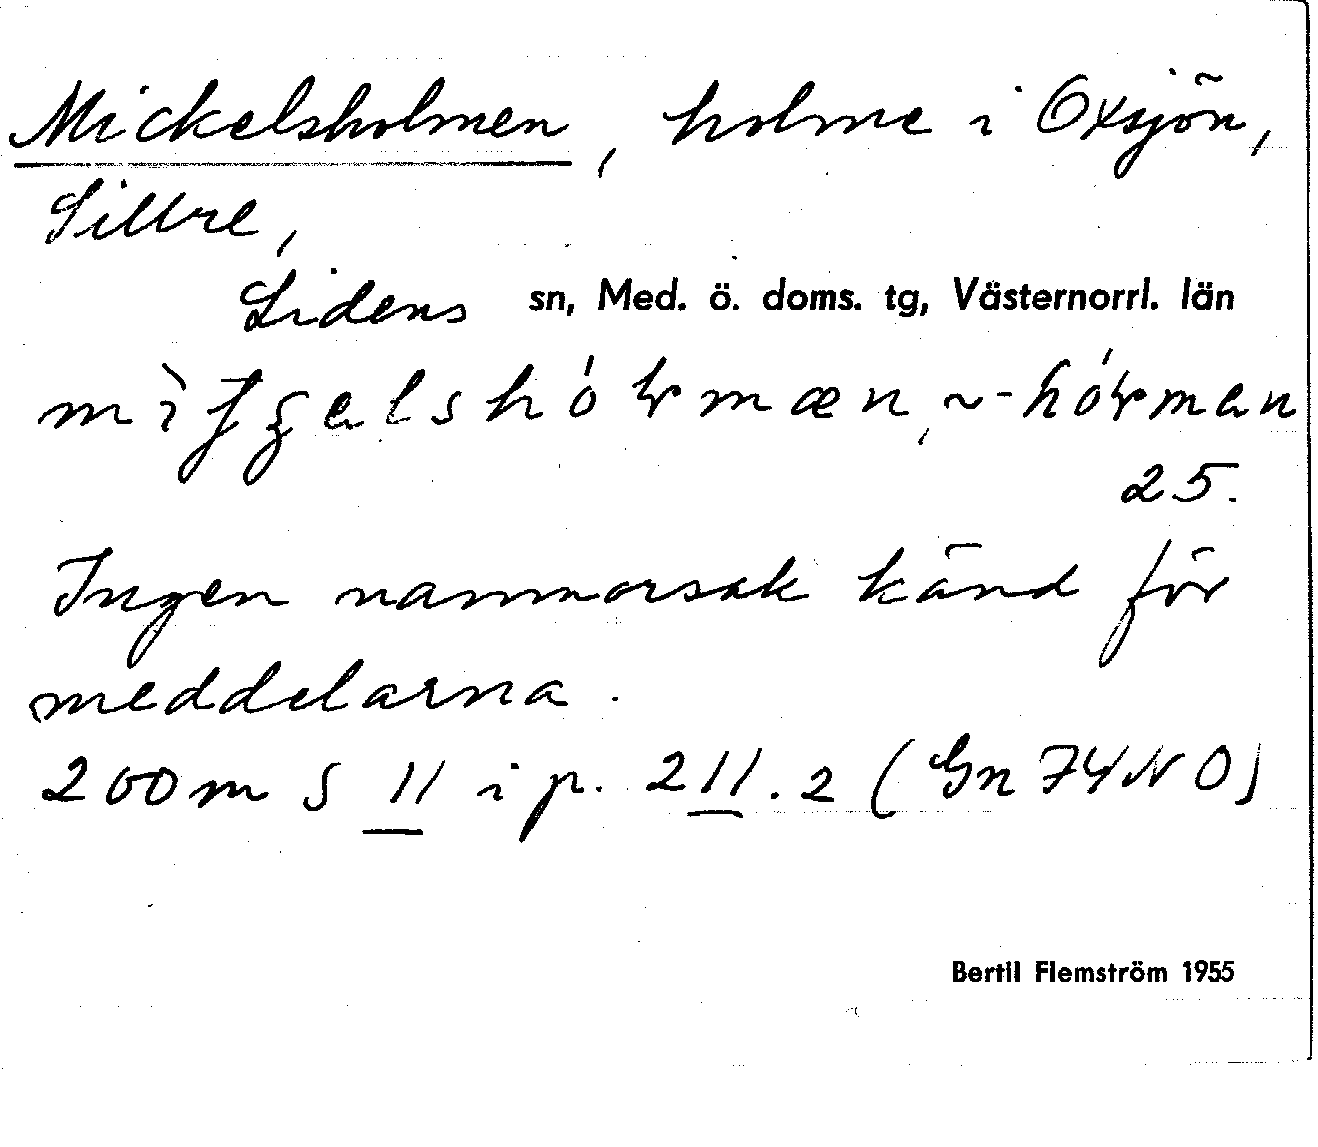 Mickelsholmen, holme i Oxsjön,
Sillre,
Lidens sn, Med. ö. doms. tg, Västernorrl. län
25.
Ingen namnorsak känd för
meddelarna.
200 m S 11 i p. 211.2 (Gn 74 NO)
Bertil Flemström 1955